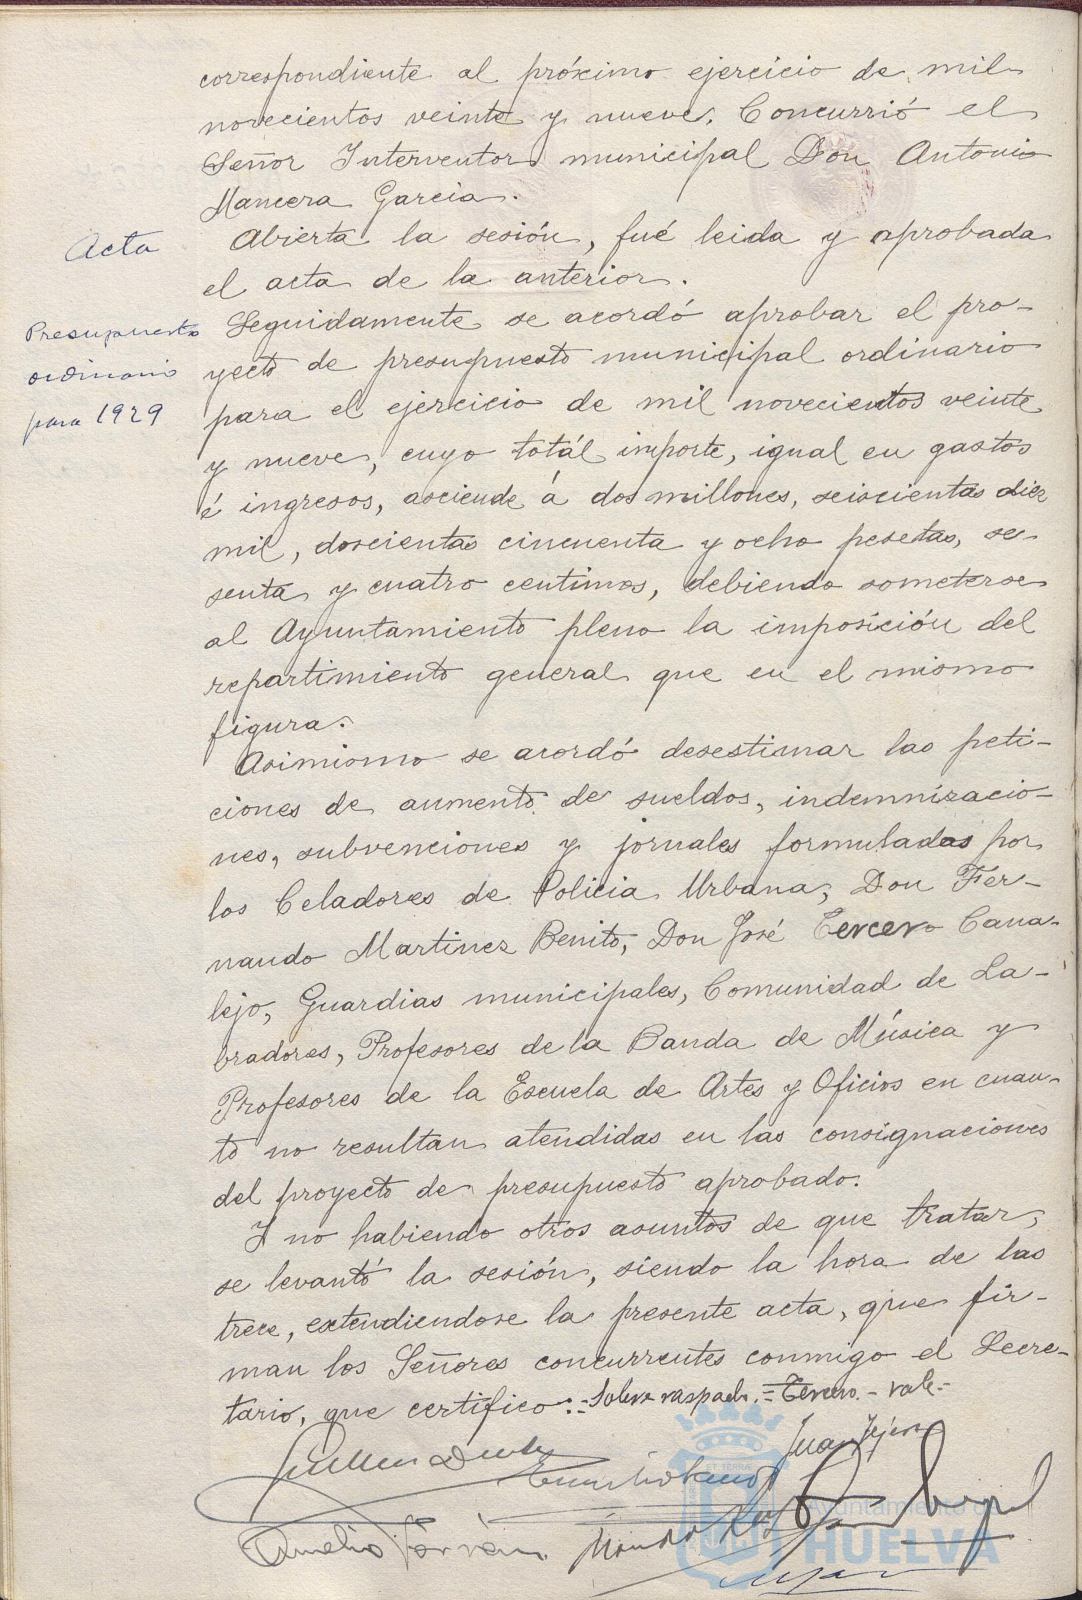 correspondiente al próximo ejercicio de mil
novecientos veinte y nueve. Concurrió el
Señor Interventor municipal Don Antonio
Mancera Garcia.
Acta
Abierta la sesión, fué leida y aprobada
el acta de la anterior.
Presupuesto
ordinario
para 1929
Seguidamente se acordó aprobar el pro-
yecto de presupuesto municipal ordinario
para el ejercicio de mil novecientos veinte
y nueve, cuyo totál importe, igual en gastos
é ingresos, asciende á dos millones, seiscientas diez
mil, doscientas cincuenta y ocho pesetas, se-
senta y cuatro centimos, debiendo someterse
al Ayuntamiento pleno la imposición del
repartimiento general que en el mismo
figura.
Asimismo se acordó desestimar las peti-
ciones de aumento de sueldos, indemnizacio-
nes, subvenciones y jornales formuladas por
los Celadores de Policia Urbana, Don Fer-
nando Martinez Benito, Don José Tercero Cana-
lejo, Guardias municipales, Comunidad de La-
bradores, Profesores de la Banda de Música y
Profesores de la Escuela de Artes y Oficios en cuan-
to no resultan atendidas en las consignaciones
del proyecto de presupuesto aprobado.
Y no habiendo otros asuntos de que tratar,
se levantó la sesión, siendo la hora de las
trece, extendiendose la presente acta, que fir-
man los Señores concurrentes conmigo el Secre-
tario, que certifico:=Sobre raspado.=Tercero.-vale.=
Juan
Ayuntamiento de
HUELVA